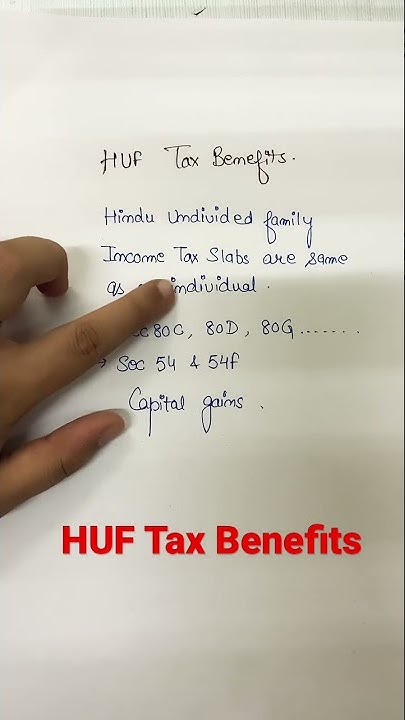 HUF Tax Benefits.
Hindu Undivided family
Income Tax Slabs are same
as individual.
80C, 80D, 80G.......
→ Sec 54 & 54f
Capital gains.
HUF Tax Benefits